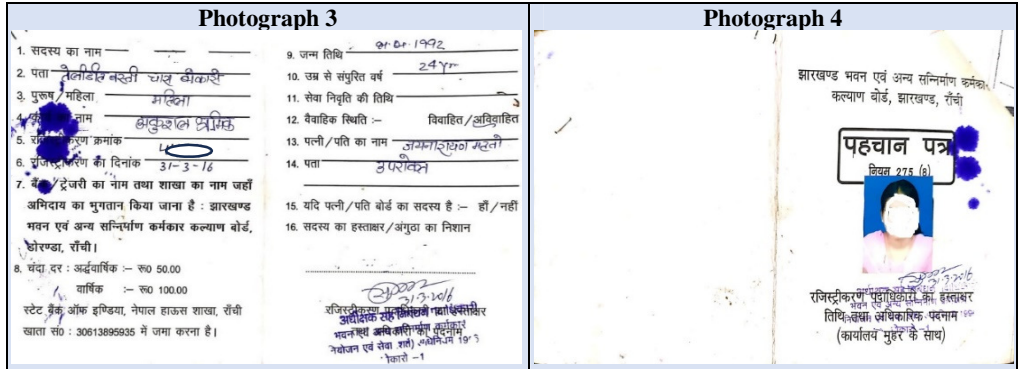 Photograph 3
1. सदस्य का नाम
2. पता तेलीडीह बस्ती चास बोकारो
3. पुरूष/महिला महिला
4. नाम अकुशल श्रमिक
5. रजिस्ट्रीकरण क्रमांक
6. रजिस्ट्रीकरण का दिनांक 31-3-16
7. बैंक/ट्रेजरी का नाम तथा शाखा का नाम जहाँ
अभिदाय का भुगतान किया जाना है : झारखण्ड
भवन एवं अन्य सन्निर्माण कर्मकार कल्याण बोर्ड,
डोरण्डा, राँची।
8. चंदा दर : अर्द्धवार्षिक :– रू0 50.00
वार्षिक :– रू0 100.00
स्टेट बैंक ऑफ इण्डिया, नेपाल हाऊस शाखा, राँची
खाता सं0 : 30613895935 में जमा करना है।
9. जन्म तिथि 1992
10. उम्र से संपुरित वर्ष 24yr
11. सेवा निवृति की तिथि
12. वैवाहिक स्थिति :– विवाहित/अविवाहित
13. पत्नी/पति का नाम जयनारायण महतो
14. पता उपरोक्त
15. यदि पत्नी/पति बोर्ड का सदस्य है :– हाँ/नहीं
16. सदस्य का हस्ताक्षर/अंगुठा का निशान
31.3.2016
रजिस्ट्रीकरण
नियोजन एवं सेवा शर्त)
बोकारो –1
Photograph 4
झारखण्ड भवन एवं अन्य सन्निर्माण कर्मकार
कल्याण बोर्ड, झारखण्ड, राँची
पहचान पत्र
नियम 275 (8)
31.3.2016
रजिस्ट्रीकरण पदाधिकारी का हस्ताक्षर
तिथि तथा अधिकारिक पदनाम
(कार्यालय मुहर के साथ)